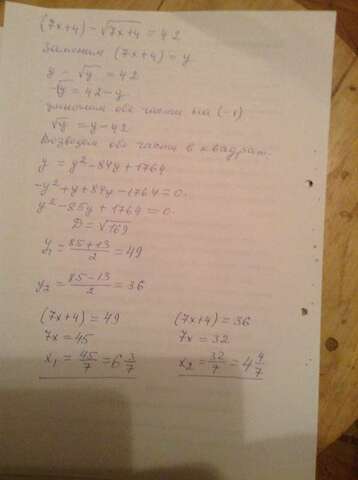 (7x+4)-√7x+4=42
Заменим (7x+4)=y
y-√y=42
-√y=42-y
умножим обе части на (-1)
√y=y-42
Возведем обе части в квадрат.
y=y²-84y+1764
-y²+y+84y-1764=0.
y²-85y+1764=0.
D=√169
y₁=(85+13)/2=49
y₂=(85-13)/2=36
(7x+4)=49 (7x+4)=36
7x=45 7x=32
x₁=45/7=6 3/7 x₂=32/7=4 4/7